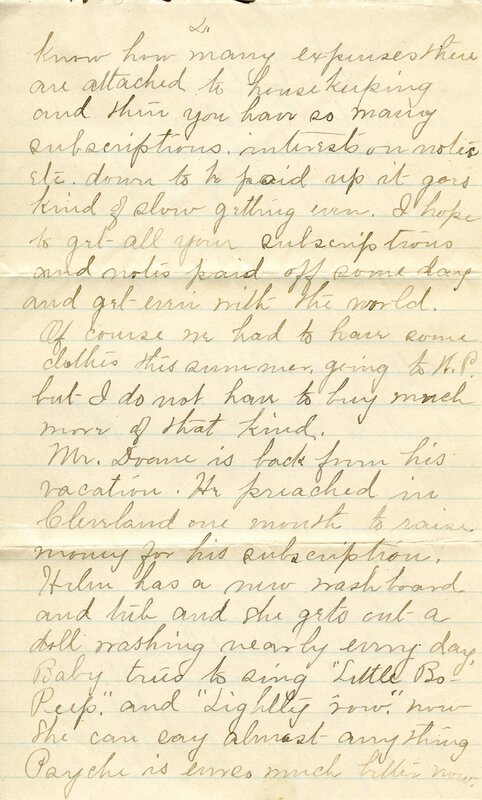 2.
know how many expenses there
are attached to housekeeping
and then you have so many
subscriptions, interest on notes
etc. down to be paid up it goes
kind of slow getting even. I hope
to get all your subscriptions
and notes paid off some day
and get even with the world.
Of course we had to have some
clothes this summer, going to N.P.
but I do not have to buy much
more of that kind.
Mr. Doane is back from his
vacation. He preached in
Cleveland one month to raise
money for his subscription.
Helen has a new washboard
and tub and she gets out a
doll washing nearly every day.
Baby tries to sing "Little Bo-
Peep," and "Lightly row." now
she can say almost anything
Psyche is ever so much better now.